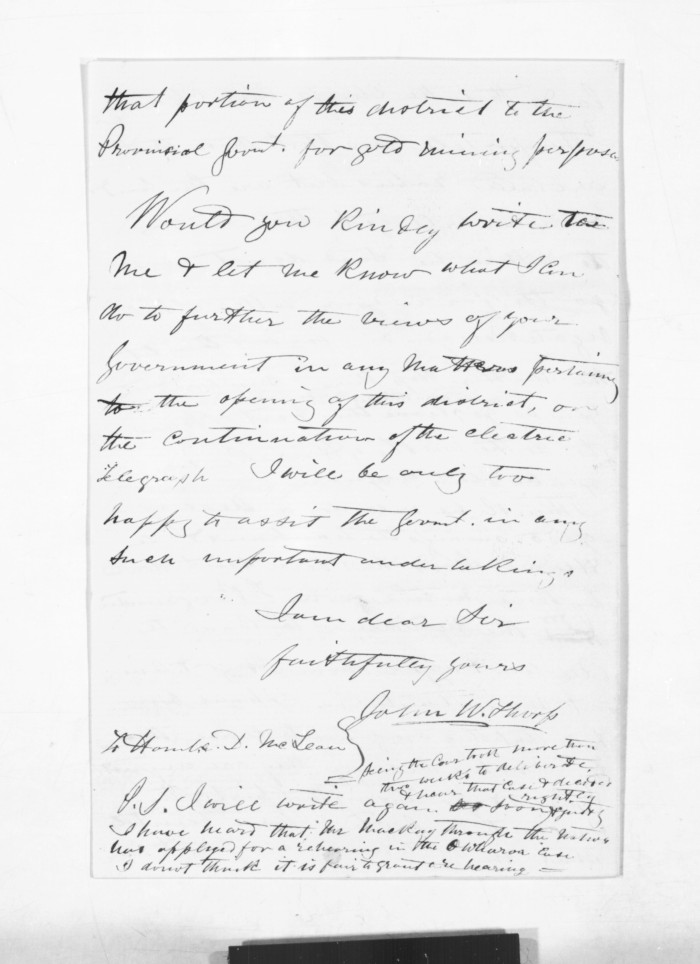 that portion of this district to the
Provincial Govnt. for gold mining purposes
Would you kindly write to
Me & let me know what I can
do to further the views of your
Government in any Matters pertaining
to the opening of this district, or
the continuation of the electric
Telegraph I will be only too
happy to assist the Govnt. in any
such important undertakings
I am dear Sir
faithfully yours
John W. Thorp
To Honble. D. McLean
being the Court took more than
two weeks to deliberate
& hear that Case & decided
rightly
P.S. I will write again
I have heard that Mr Mackay through the Natives
has applyed for a rehearing in the Owharoa Case
I do not think it is fair to grant a re hearing —